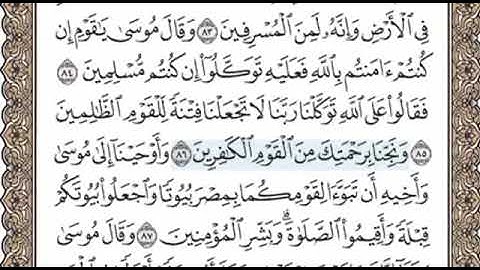 فِى ٱلْأَرْضِ وَإِنَّهُۥ لَمِنَ ٱلْمُسْرِفِينَ ٨٣ وَقَالَ مُوسَىٰ يَٰقَوْمِ إِن
كُنتُمْ ءَامَنتُم بِٱللَّهِ فَعَلَيْهِ تَوَكَّلُوٓا۟ إِن كُنتُم مُّسْلِمِينَ ٨٤
فَقَالُوا۟ عَلَى ٱللَّهِ تَوَكَّلْنَا رَبَّنَا لَا تَجْعَلْنَا فِتْنَةً لِّلْقَوْمِ ٱلظَّٰلِمِينَ
٨٥ وَنَجِّنَا بِرَحْمَتِكَ مِنَ ٱلْقَوْمِ ٱلْكَٰفِرِينَ ٨٦ وَأَوْحَيْنَآ إِلَىٰ مُوسَىٰ
وَأَخِيهِ أَن تَبَوَّءَا لِقَوْمِكُمَا بِمِصْرَ بُيُوتًا وَٱجْعَلُوا۟ بُيُوتَكُمْ
قِبْلَةً وَأَقِيمُوا۟ ٱلصَّلَوٰةَ ۗ وَبَشِّرِ ٱلْمُؤْمِنِينَ ٨٧ وَقَالَ مُوسَىٰ